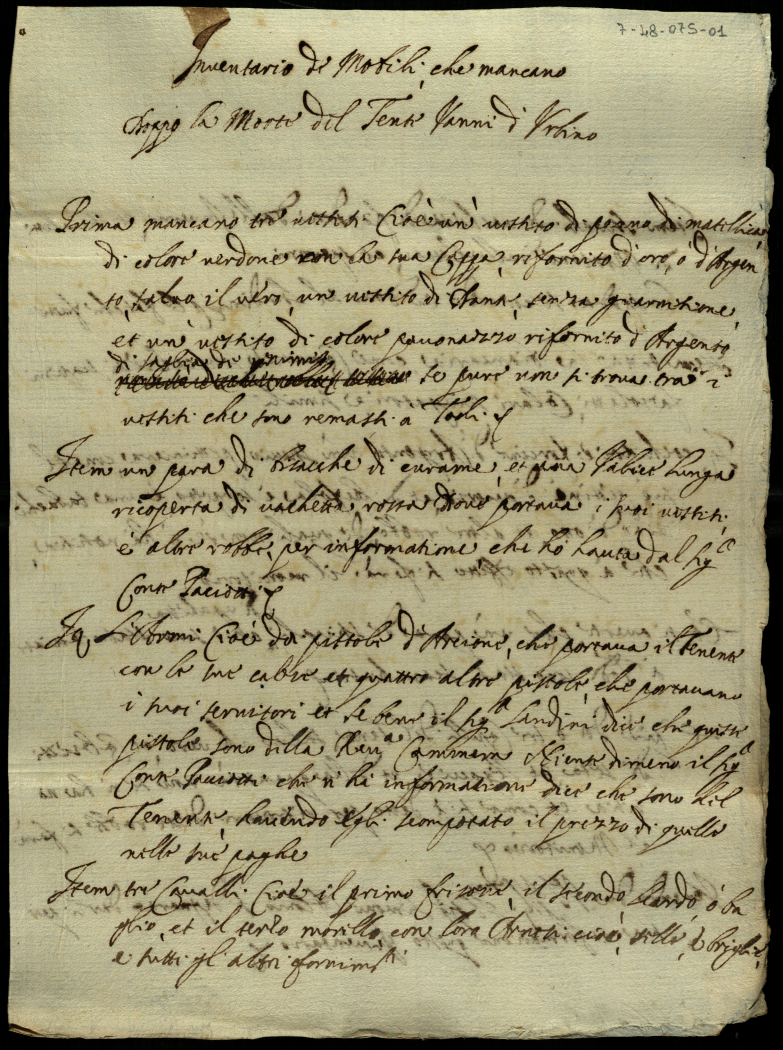 7-48-075-01
Inventario de Mobili, che mancano
Doppo la Morte del Tente Vanni d'Urbino
Prima mancano tre vestiti Cioè un' vestito di panno di matellica
di colore verdone con la sua Cappa rifornito d'oro, o d'Argen
to, salvo il vero, un vestito di Lana, senza guarnitione,
et un' vestito di colore pavonazzo rifornito d'Argento
se pure non si trova tra i
vestiti che sono remasti a Todi
Item un para di bisacche di curame, et una Valice lunga
ricoperta di vachetta rossa dove portava i suoi vestiti,
e altre robbe, per informatione che hò hauta dal Sigr
Conte Paciotti
It. L'Armi Cioè doi pistole d'Arcione, che portava il Tenente
con le sue calze et quattro altre pistole, che portavano
i suoi servitori et se bene il Sigr Landini dice che queste
pistole sono della Reva Cammera Niente dimeno il Sigr
Conte Paciotti che n'hà informatione dice che sono del
Tenente, havendo Egli scomputato il prezzo di quelle
nelle sue paghe
Item tre Cavalli Cioè il primo frisone, il secondo Leardo, ò ba
glio, et il terzo morello con loro Arnesi cioè, selle, e briglie,
e tutti gl'altri fornimti